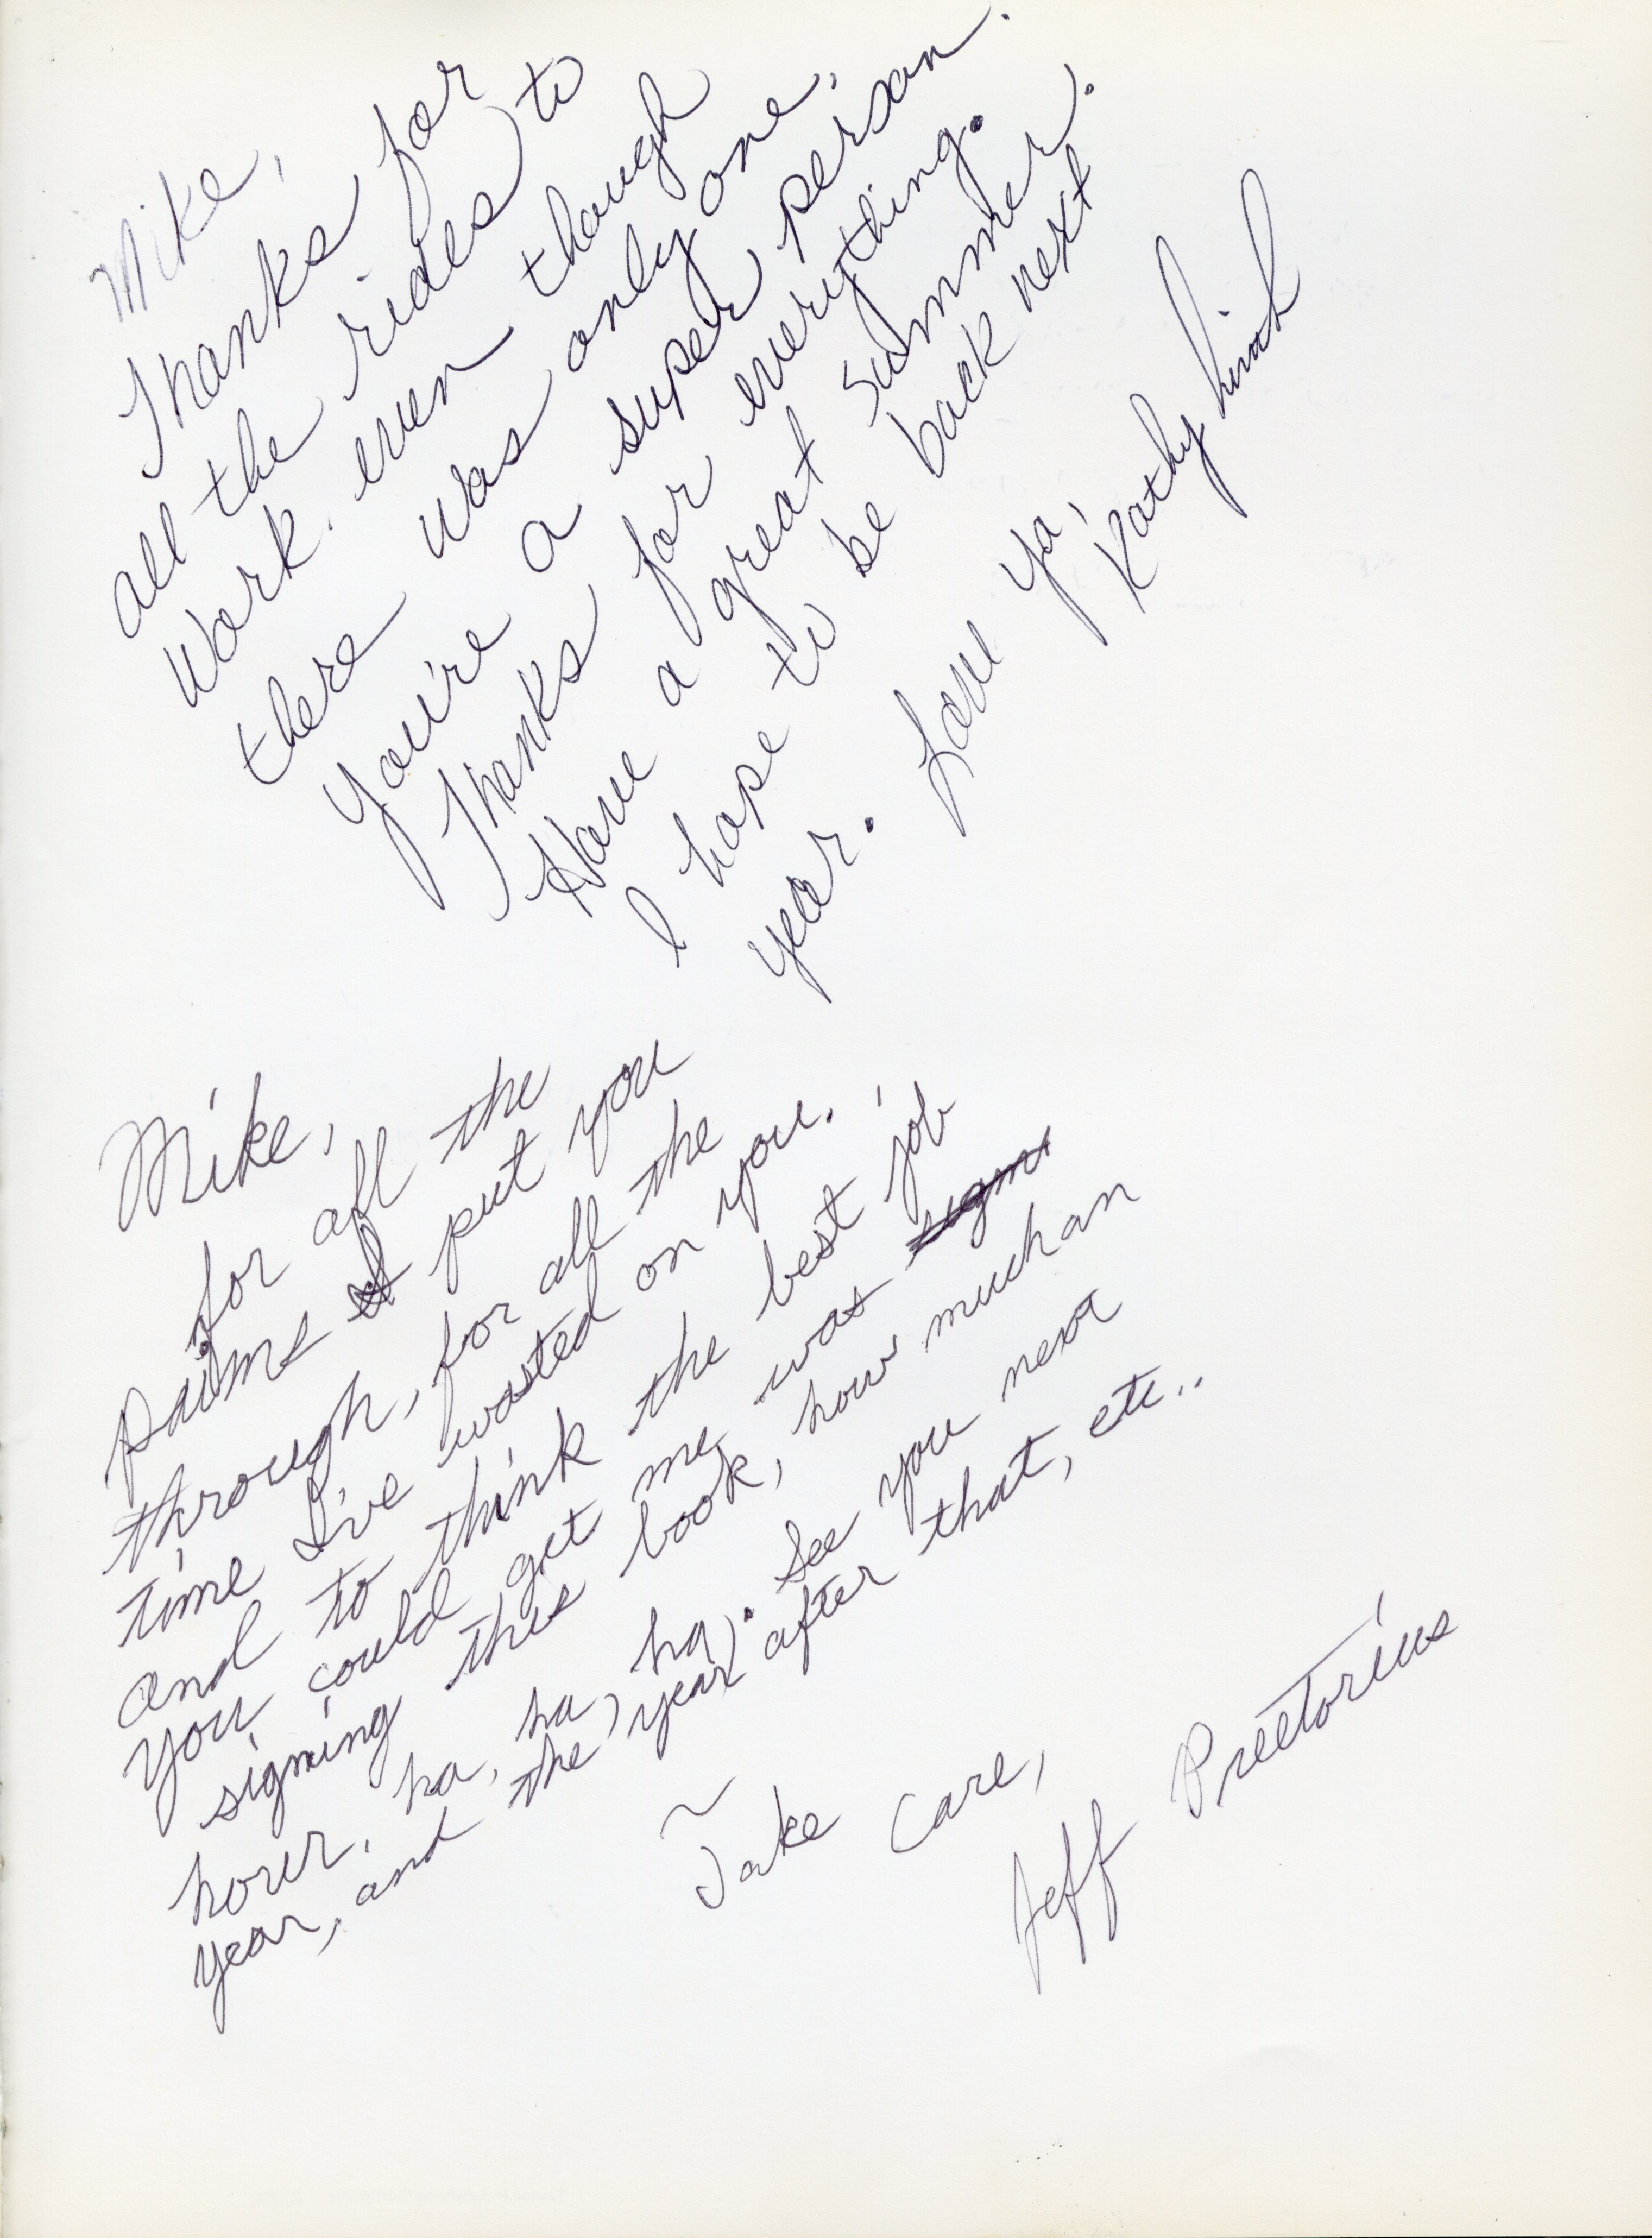 Mike,
Thanks for
all the rides to
work. even though
there was only one,
You're a super person.
Thanks for everything.
Have a great summer.
I hope to be back next
year. Love ya,
Kathy
Mike,
for all the
pains I put you
through, for all the
time I've wasted on you.
and to think the best job
you could get me was
signing this book, how much an
hour, ha, ha, ha. See you next
year, and the year after that, etc..
~
Take Care,
Jeff Preetorius